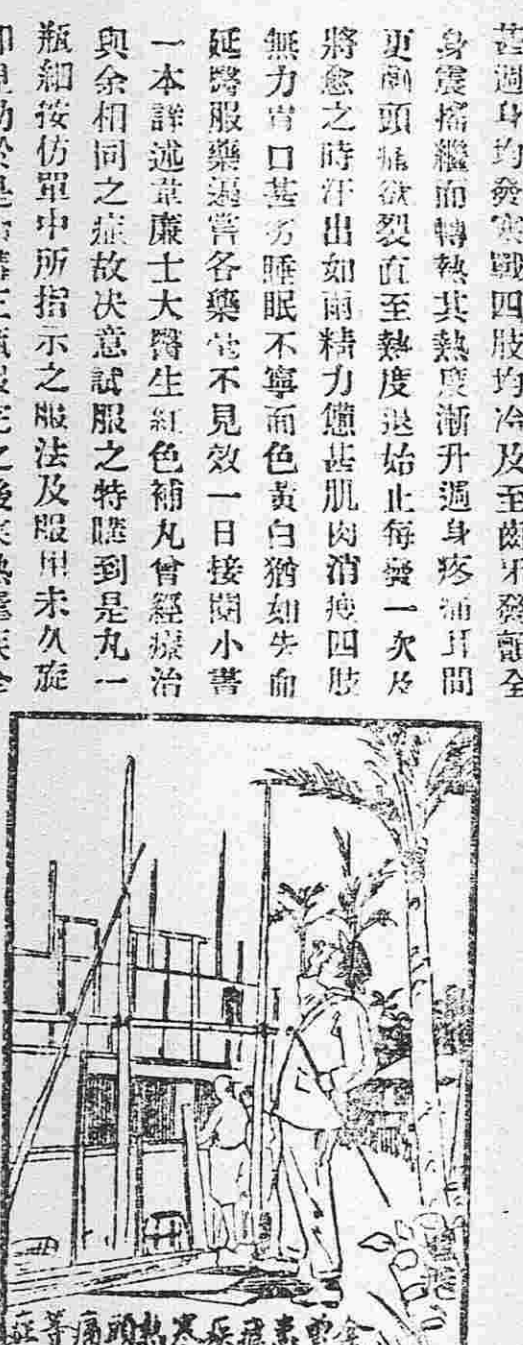 甚週身均發寒戰四肢均冷及至齒牙發顫全
身震搖繼而轉熱其熱度漸升週身疼痛日間
更劇頭痛欲裂直至熱度退始止每發一次及
將愈之時汗出如雨精力憊甚肌肉消瘦四肢
無力胃口甚劣睡眠不寧面色黃白猶如失血
延醫服藥遍嘗各藥不見效一日接閱小書
一本詳述韋廉士大醫生紅色補丸曾經療治
與余相同之症故决意試服之特購到是丸一
瓶細按仿單中所指示之服法及服用未久旋
之後
患瘧疾寒熱頭痛等症